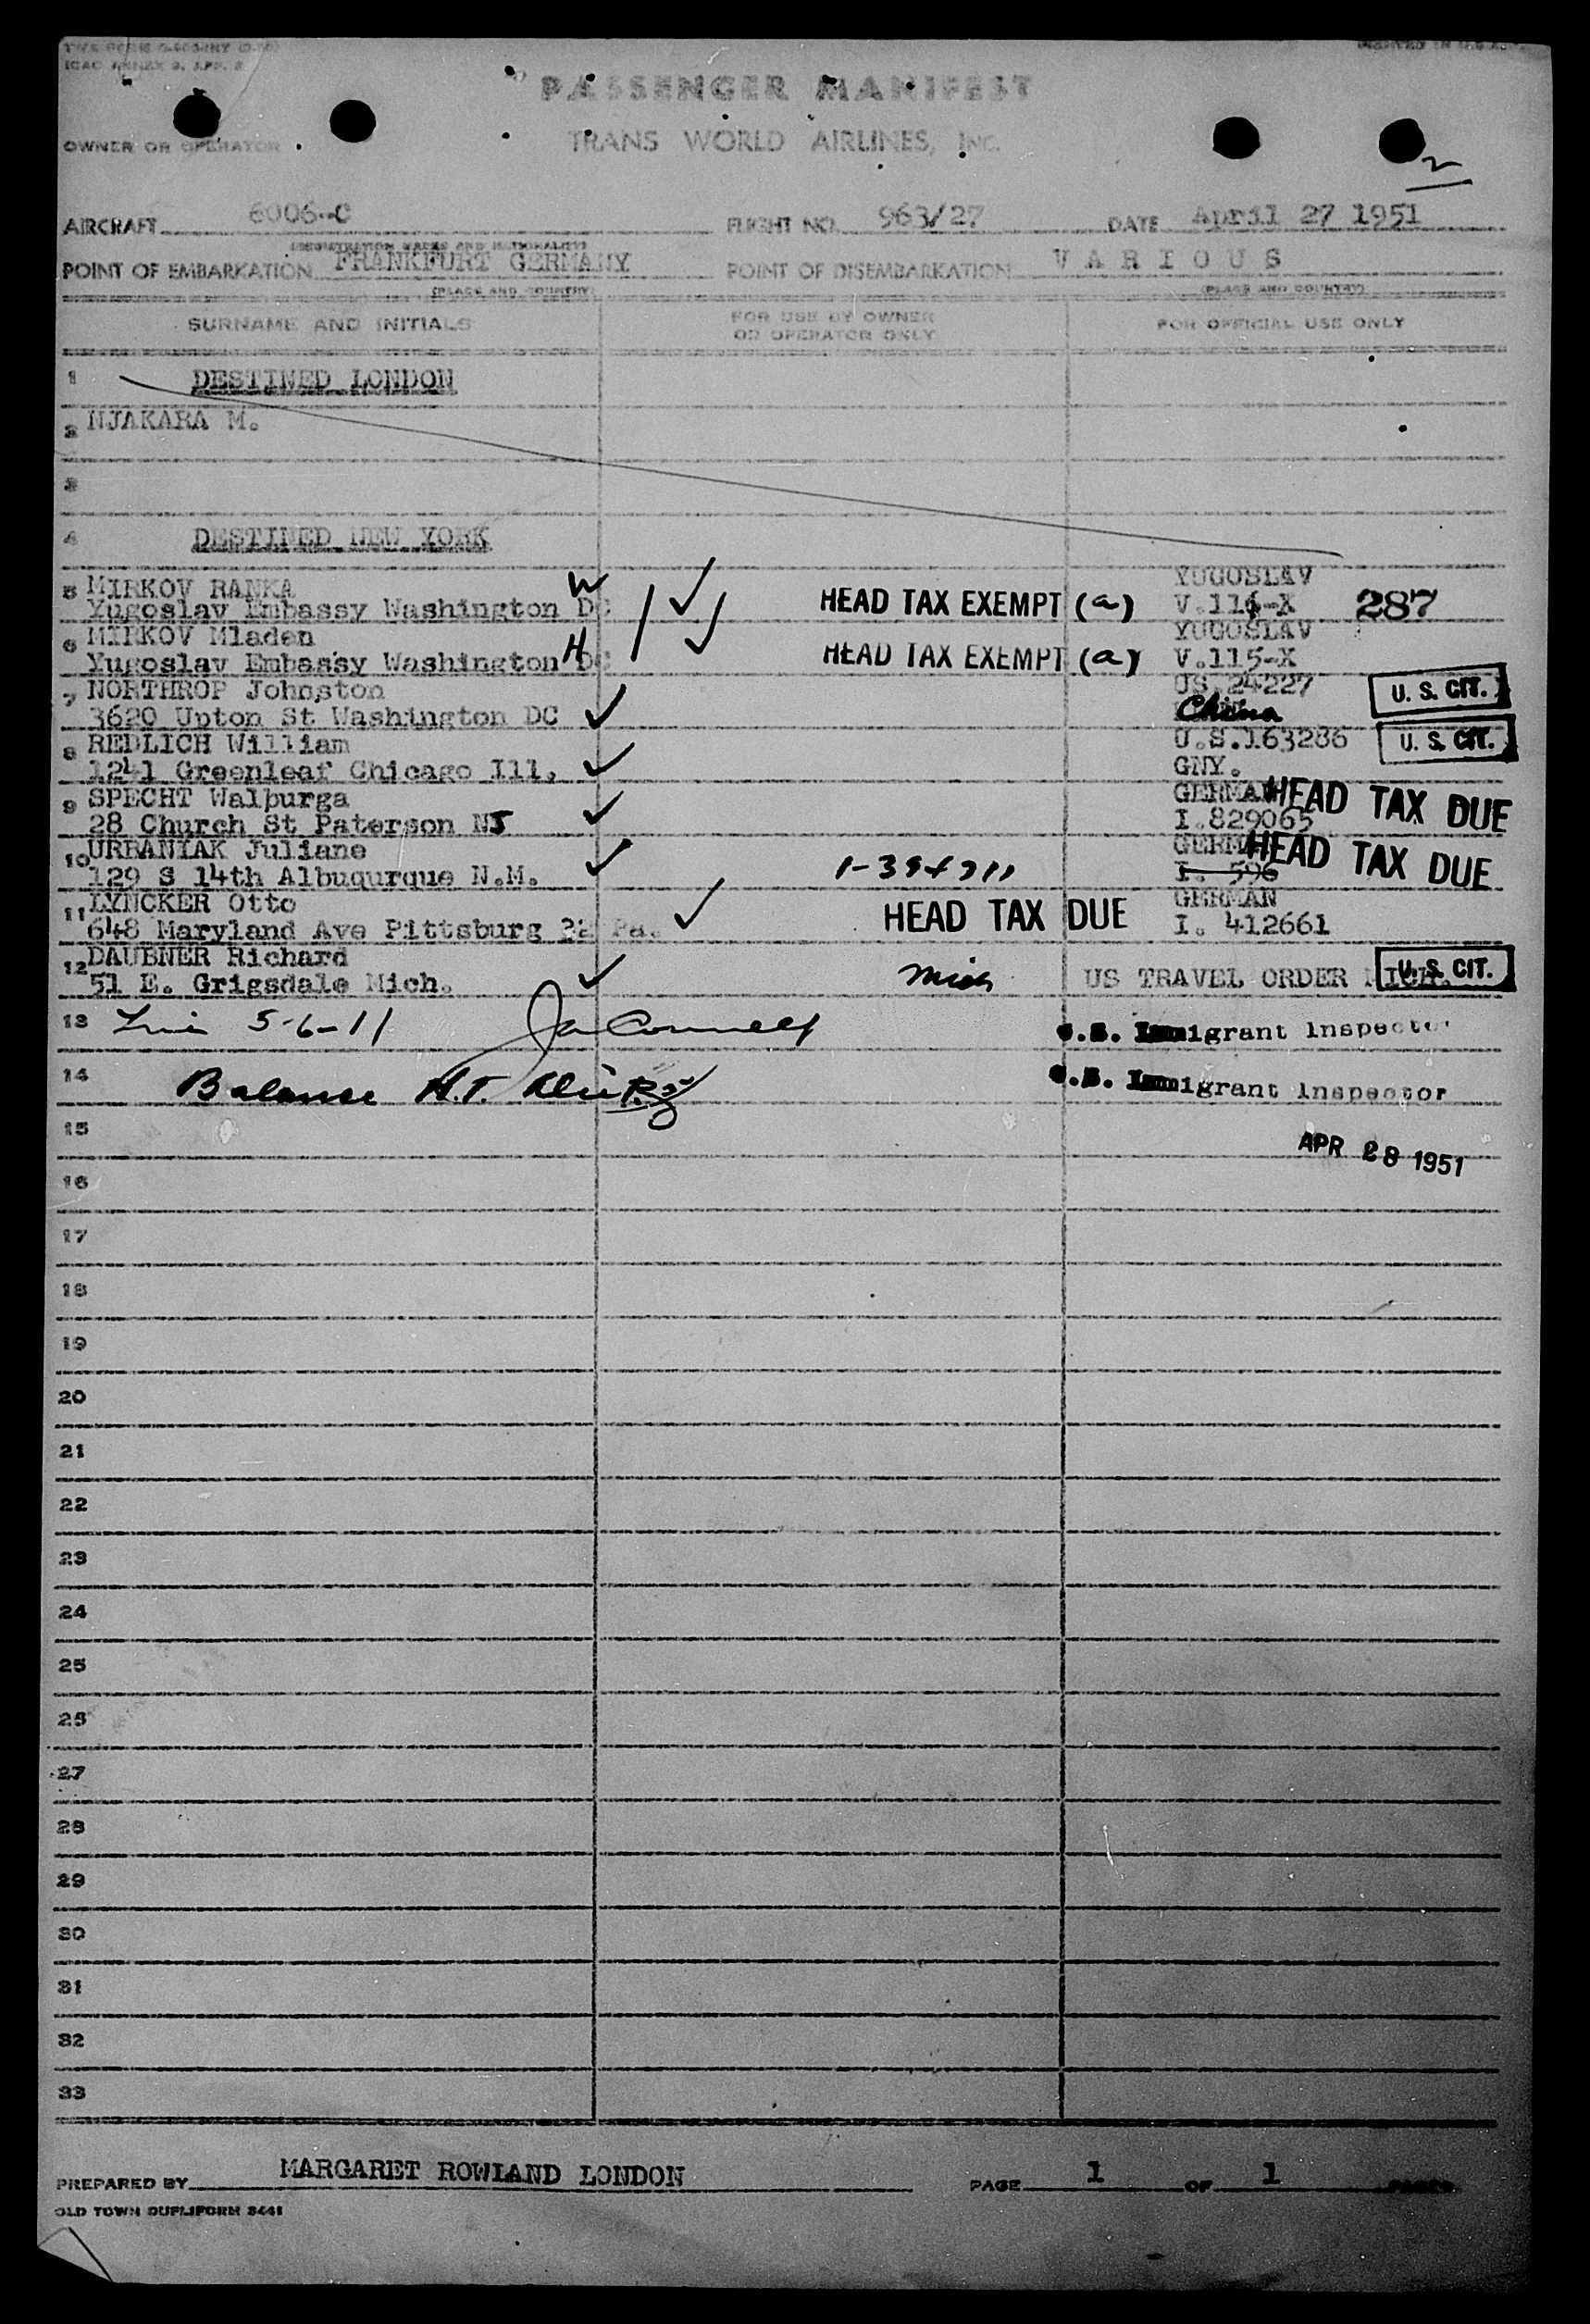 ICAO ANNEX 9, APP. 2
PASSENGER MANIFEST
OWNER OR OPERATOR
TRANS WORLD AIRLINES, INC.
2
AIRCRAFT 6006-C FLIGHT NO. 963/27 DATE April 27 1951
(REGISTRATION MARKS AND NATIONALITY)
POINT OF EMBARKATION FRANKFURT GERMANY POINT OF DISEMBARKATION VARIOUS
(PLACE AND COUNTRY) (PLACE AND COUNTRY)
SURNAME AND INITIALS FOR USE BY OWNER OR OPERATOR ONLY FOR OFFICIAL USE ONLY
1 DESTINED LONDON
2 NJAKARA M.
3
4 DESTINED NEW YORK
5 MIRKOV RANKA W YUGOSLAV
Yugoslav Embassy Washington DC HEAD TAX EXEMPT (a) V.116-X 287
6 MIRKOV Mladen H YUGOSLAV
Yugoslav Embassy Washington DC HEAD TAX EXEMPT (a) V.115-X
7 NORTHROP Johnston US.24227 U. S. CIT.
3620 Upton St Washington DC China
8 REDLICH William U.S.163286 U. S. CIT.
1241 Greenleaf Chicago Ill. GNY.
9 SPECHT Walburga GERMAN HEAD TAX DUE
28 Church St Paterson NJ I.829065
10 URBANIAK Juliane GERMAN HEAD TAX DUE
129 S 14th Albuqurque N.M. I. 596
11 LYNCKER Otto HEAD TAX DUE GERMAN
648 Maryland Ave Pittsburg 32 Pa. I. 412661
12 DAUBNER Richard
51 E. Grigsdale Mich. US TRAVEL ORDER MICH. U. S. CIT.
13 5-6-11 U.S. Immigrant Inspector
14 Balance H.T. U.S. Immigrant Inspector
15 APR 28 1951
16
17
18
19
20
21
22
23
24
25
26
27
28
29
30
31
32
33
PREPARED BY MARGARET ROWLAND LONDON PAGE 1 OF 1 PAGES
OLD TOWN DUPLIFORM 3441